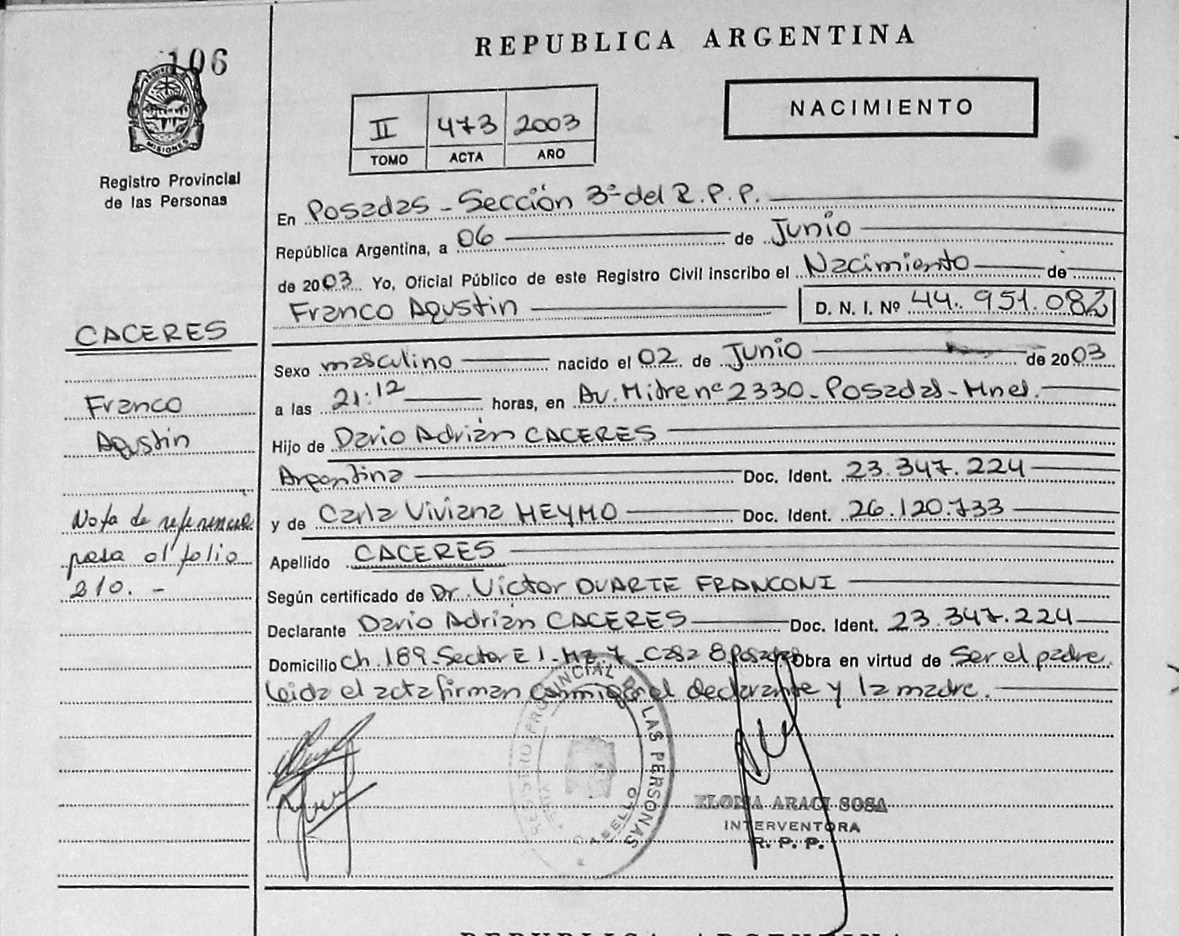 106
MISIONES
Registro Provincial
de las Personas
CACERES
Franco
Agustin
Nota de referencia
pasa al folio
210. -
REPUBLICA ARGENTINA
II 473 2003
TOMO ACTA AÑO
NACIMIENTO
En Posadas - Sección 3ª del R.P.P.
República Argentina, a 06 de Junio
de 2003 Yo, Oficial Público de este Registro Civil inscribo el Nacimiento de
Franco Agustin D. N. I. Nº 44. 951.082
Sexo masculino nacido el 02 de Junio de 2003
a las 21:12 horas, en Av. Mitre nº 2330 - Posadas - Mnes.
Hijo de Dario Adrián CACERES
Argentina Doc. Ident. 23.347.224
y de Carla Viviana HEYMO Doc. Ident. 26.120.733
Apellido CACERES
Según certificado de Dr. Victor DUARTE FRANCONI
Declarante Dario Adrián CACERES Doc. Ident. 23.347.224
Domicilio Ch. 189 - Sector E 1 - Mz. 7 - Casa 8 Posadas Obra en virtud de Ser el padre.
Leida el acta firman conmigo el declarante y la madre.
REGISTRO PROVINCIAL DE LAS PERSONAS
ARACI SOSA
INTERVENTORA
R. P. P.
REPUBLICA ARGENTINA